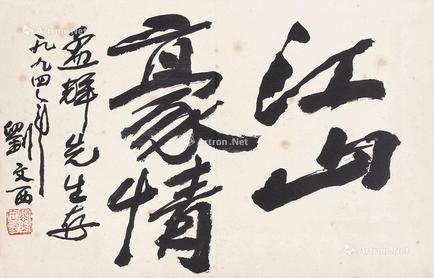 江山
豪情
孟辉先生存
一九九四年
劉文西
Artron.Net